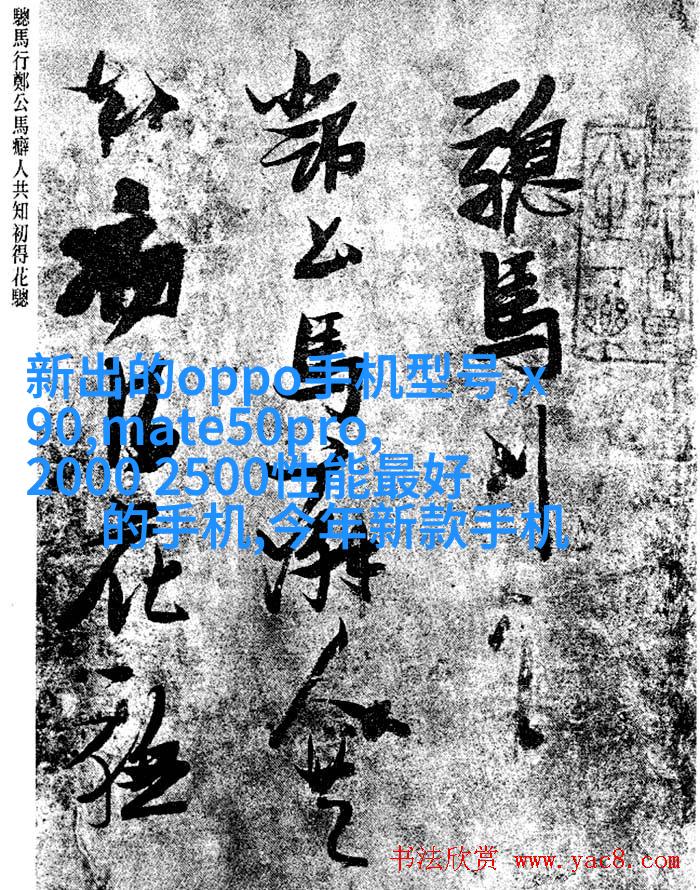 驄馬行鄭公馬癖人共知初得花驄
驄馬行
鄭公馬癖人共
知初得花驄
新出的oppo手机型号,x
90,mate50pro,
2000 2500性能最好
的手机,今年新款手机
书法欣赏 www.yac8.com